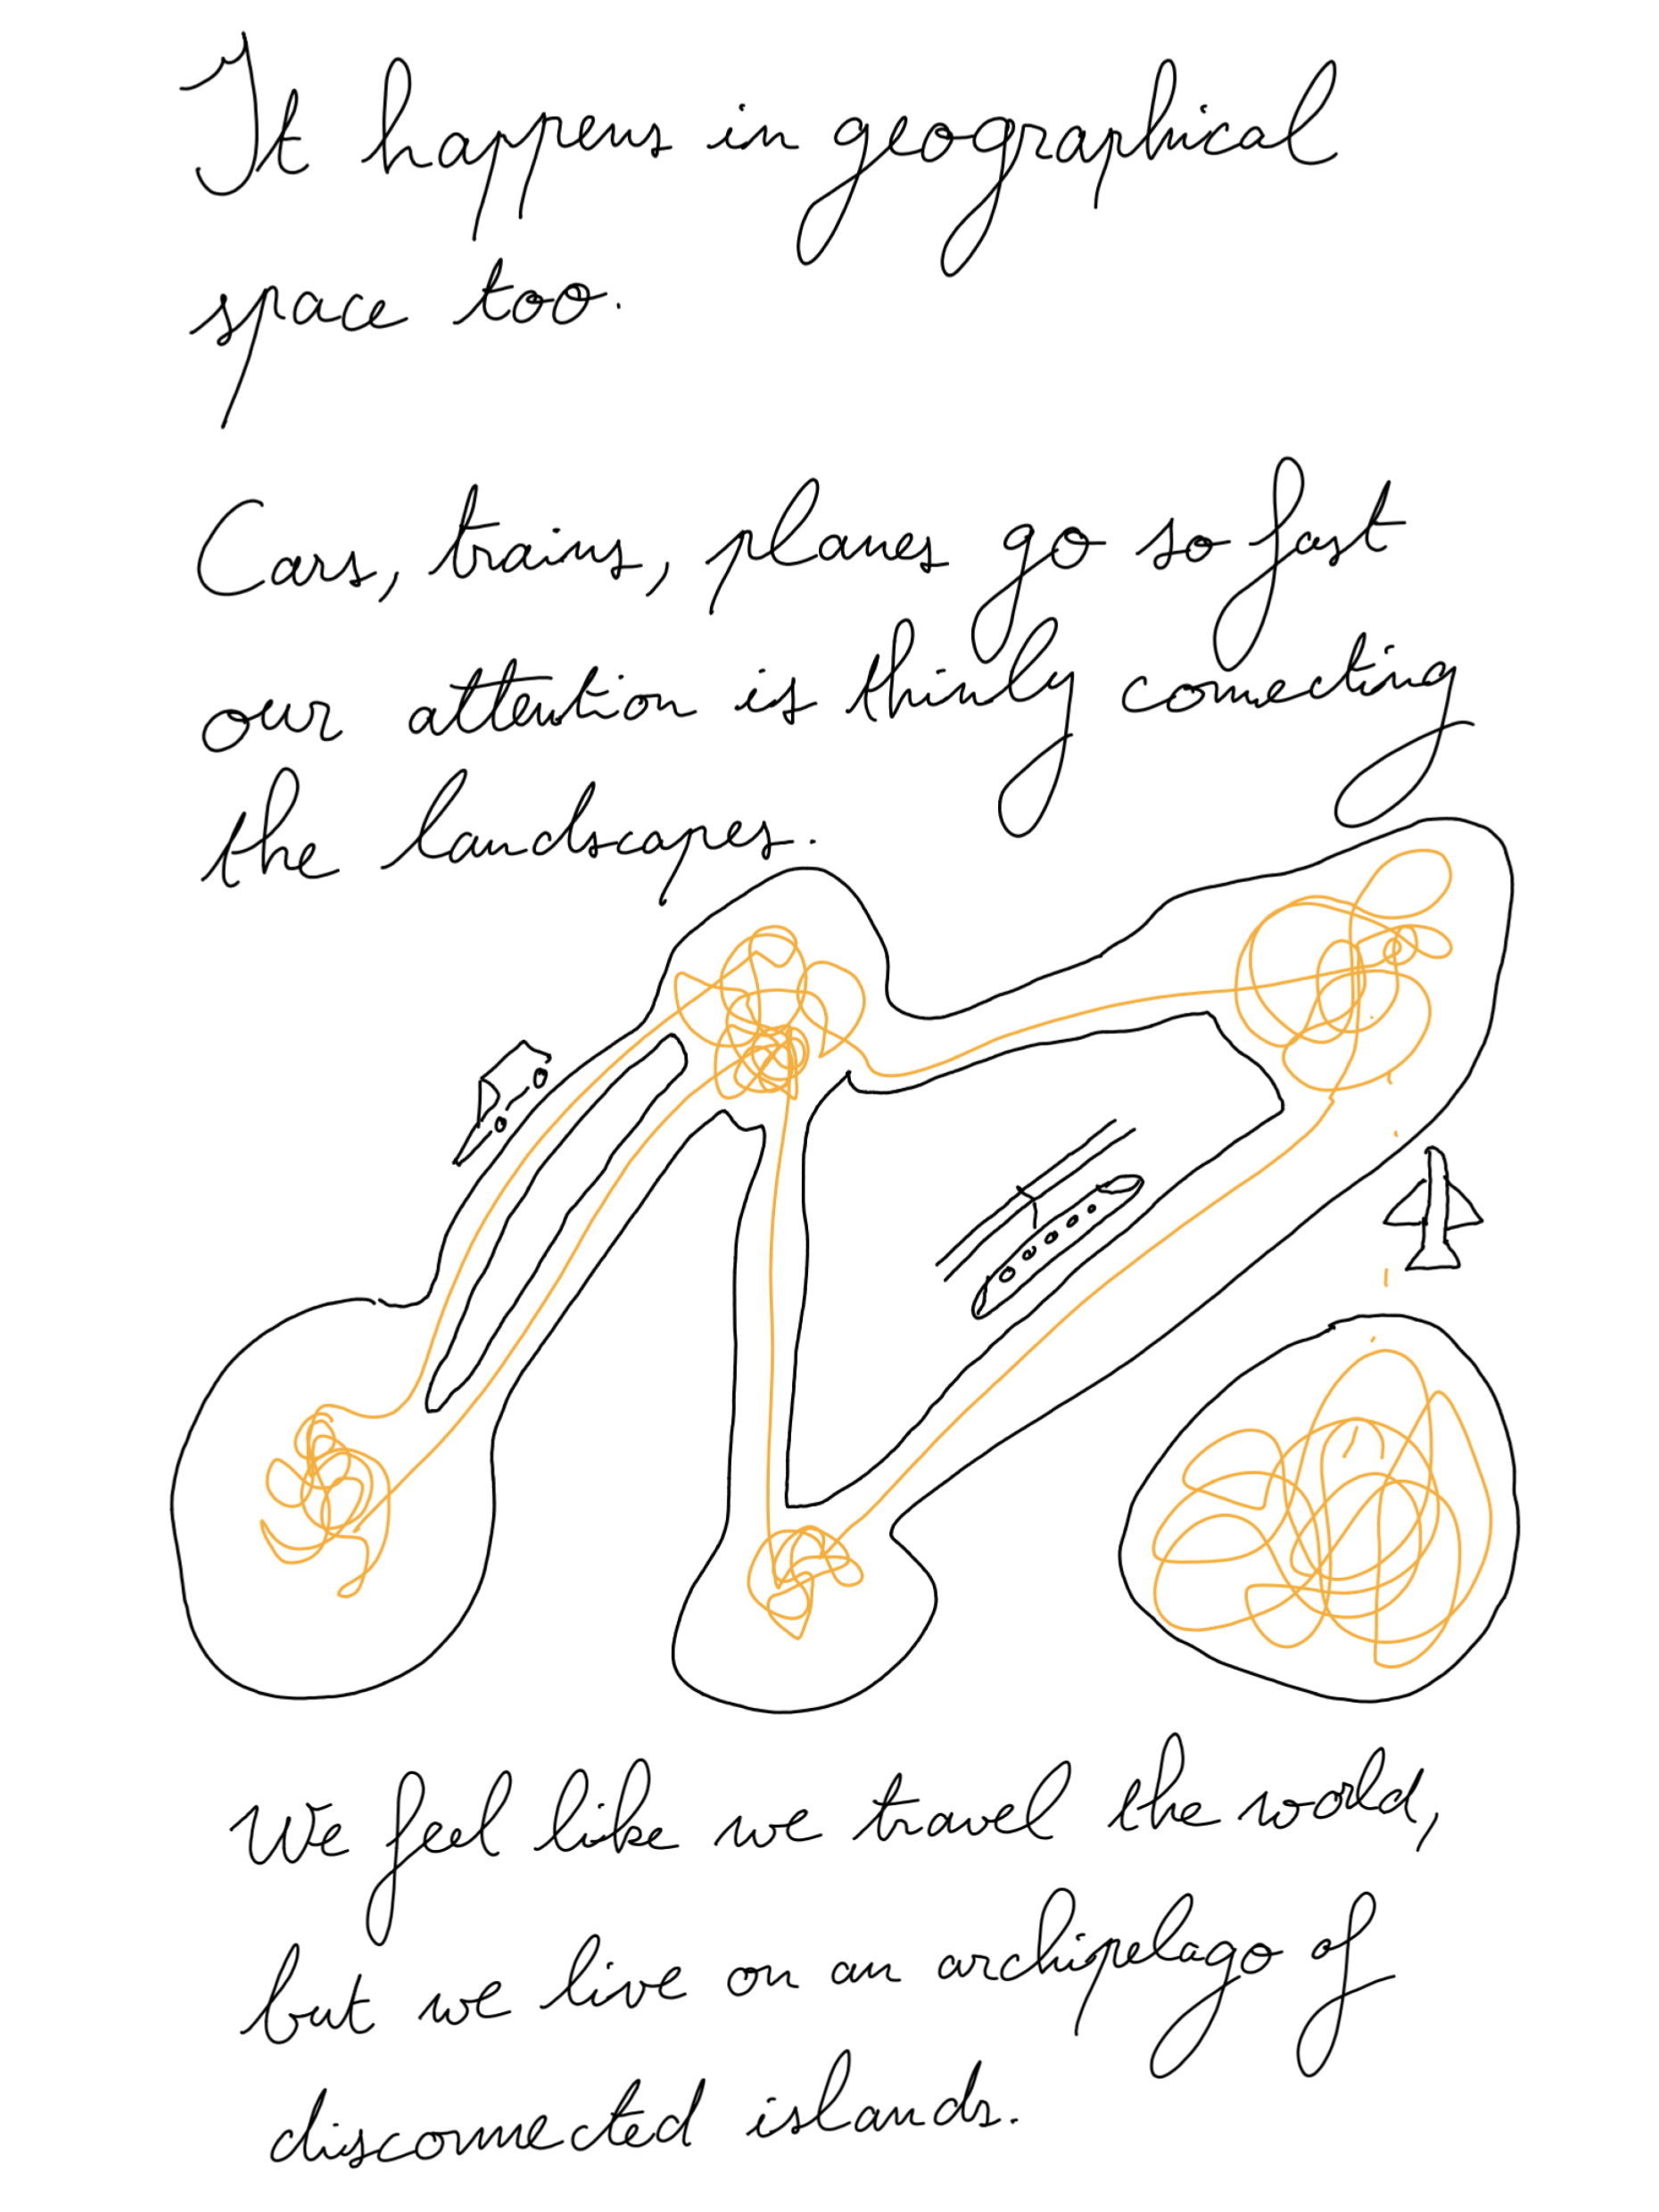 It happens in geographical
space too.
Cars, trains, planes go so fast
our attention is thinly connecting
the landscapes.
We feel like we travel the world,
but we live on an archipelago of
disconnected islands.